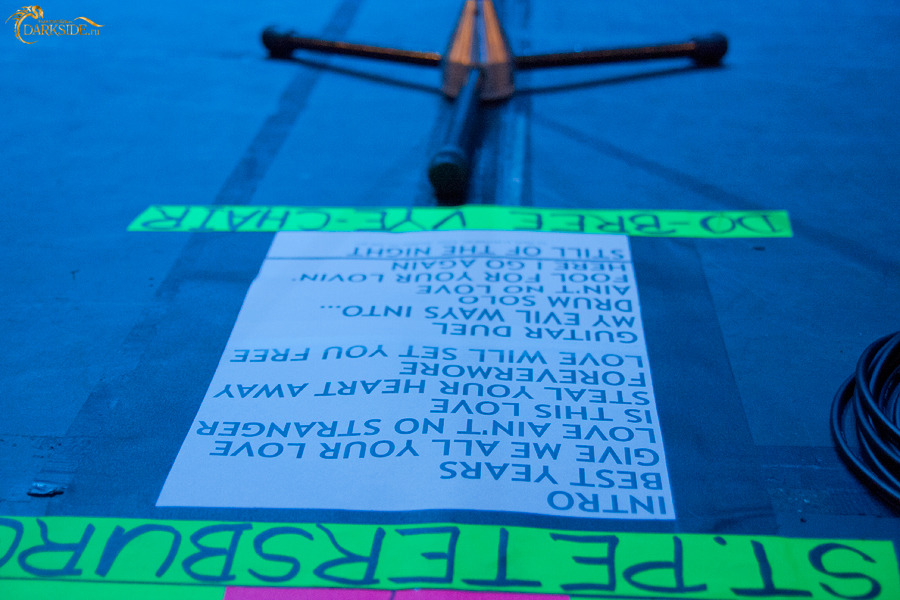 DARKSIDE.ru
ST. PETERSBURG
INTRO
BEST YEARS
GIVE ME ALL YOUR LOVE
LOVE AIN'T NO STRANGER
IS THIS LOVE
STEAL YOUR HEART AWAY
FOREVERMORE
LOVE WILL SET YOU FREE
GUITAR DUEL
MY EVIL WAYS INTO...
DRUM SOLO
AIN'T NO LOVE
FOOL FOR YOUR LOVIN'
HERE I GO AGAIN
STILL OF THE NIGHT
DO-BREE VYE-CHAIR